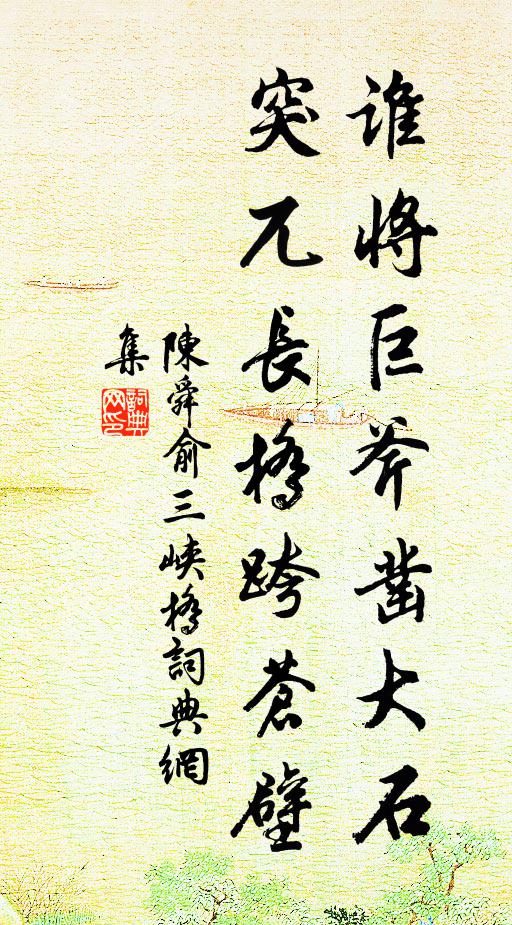 谁将巨斧凿大石
突兀長橋跨蒼壁
陳舜俞三峡橋詞典網
集
詞典
网印